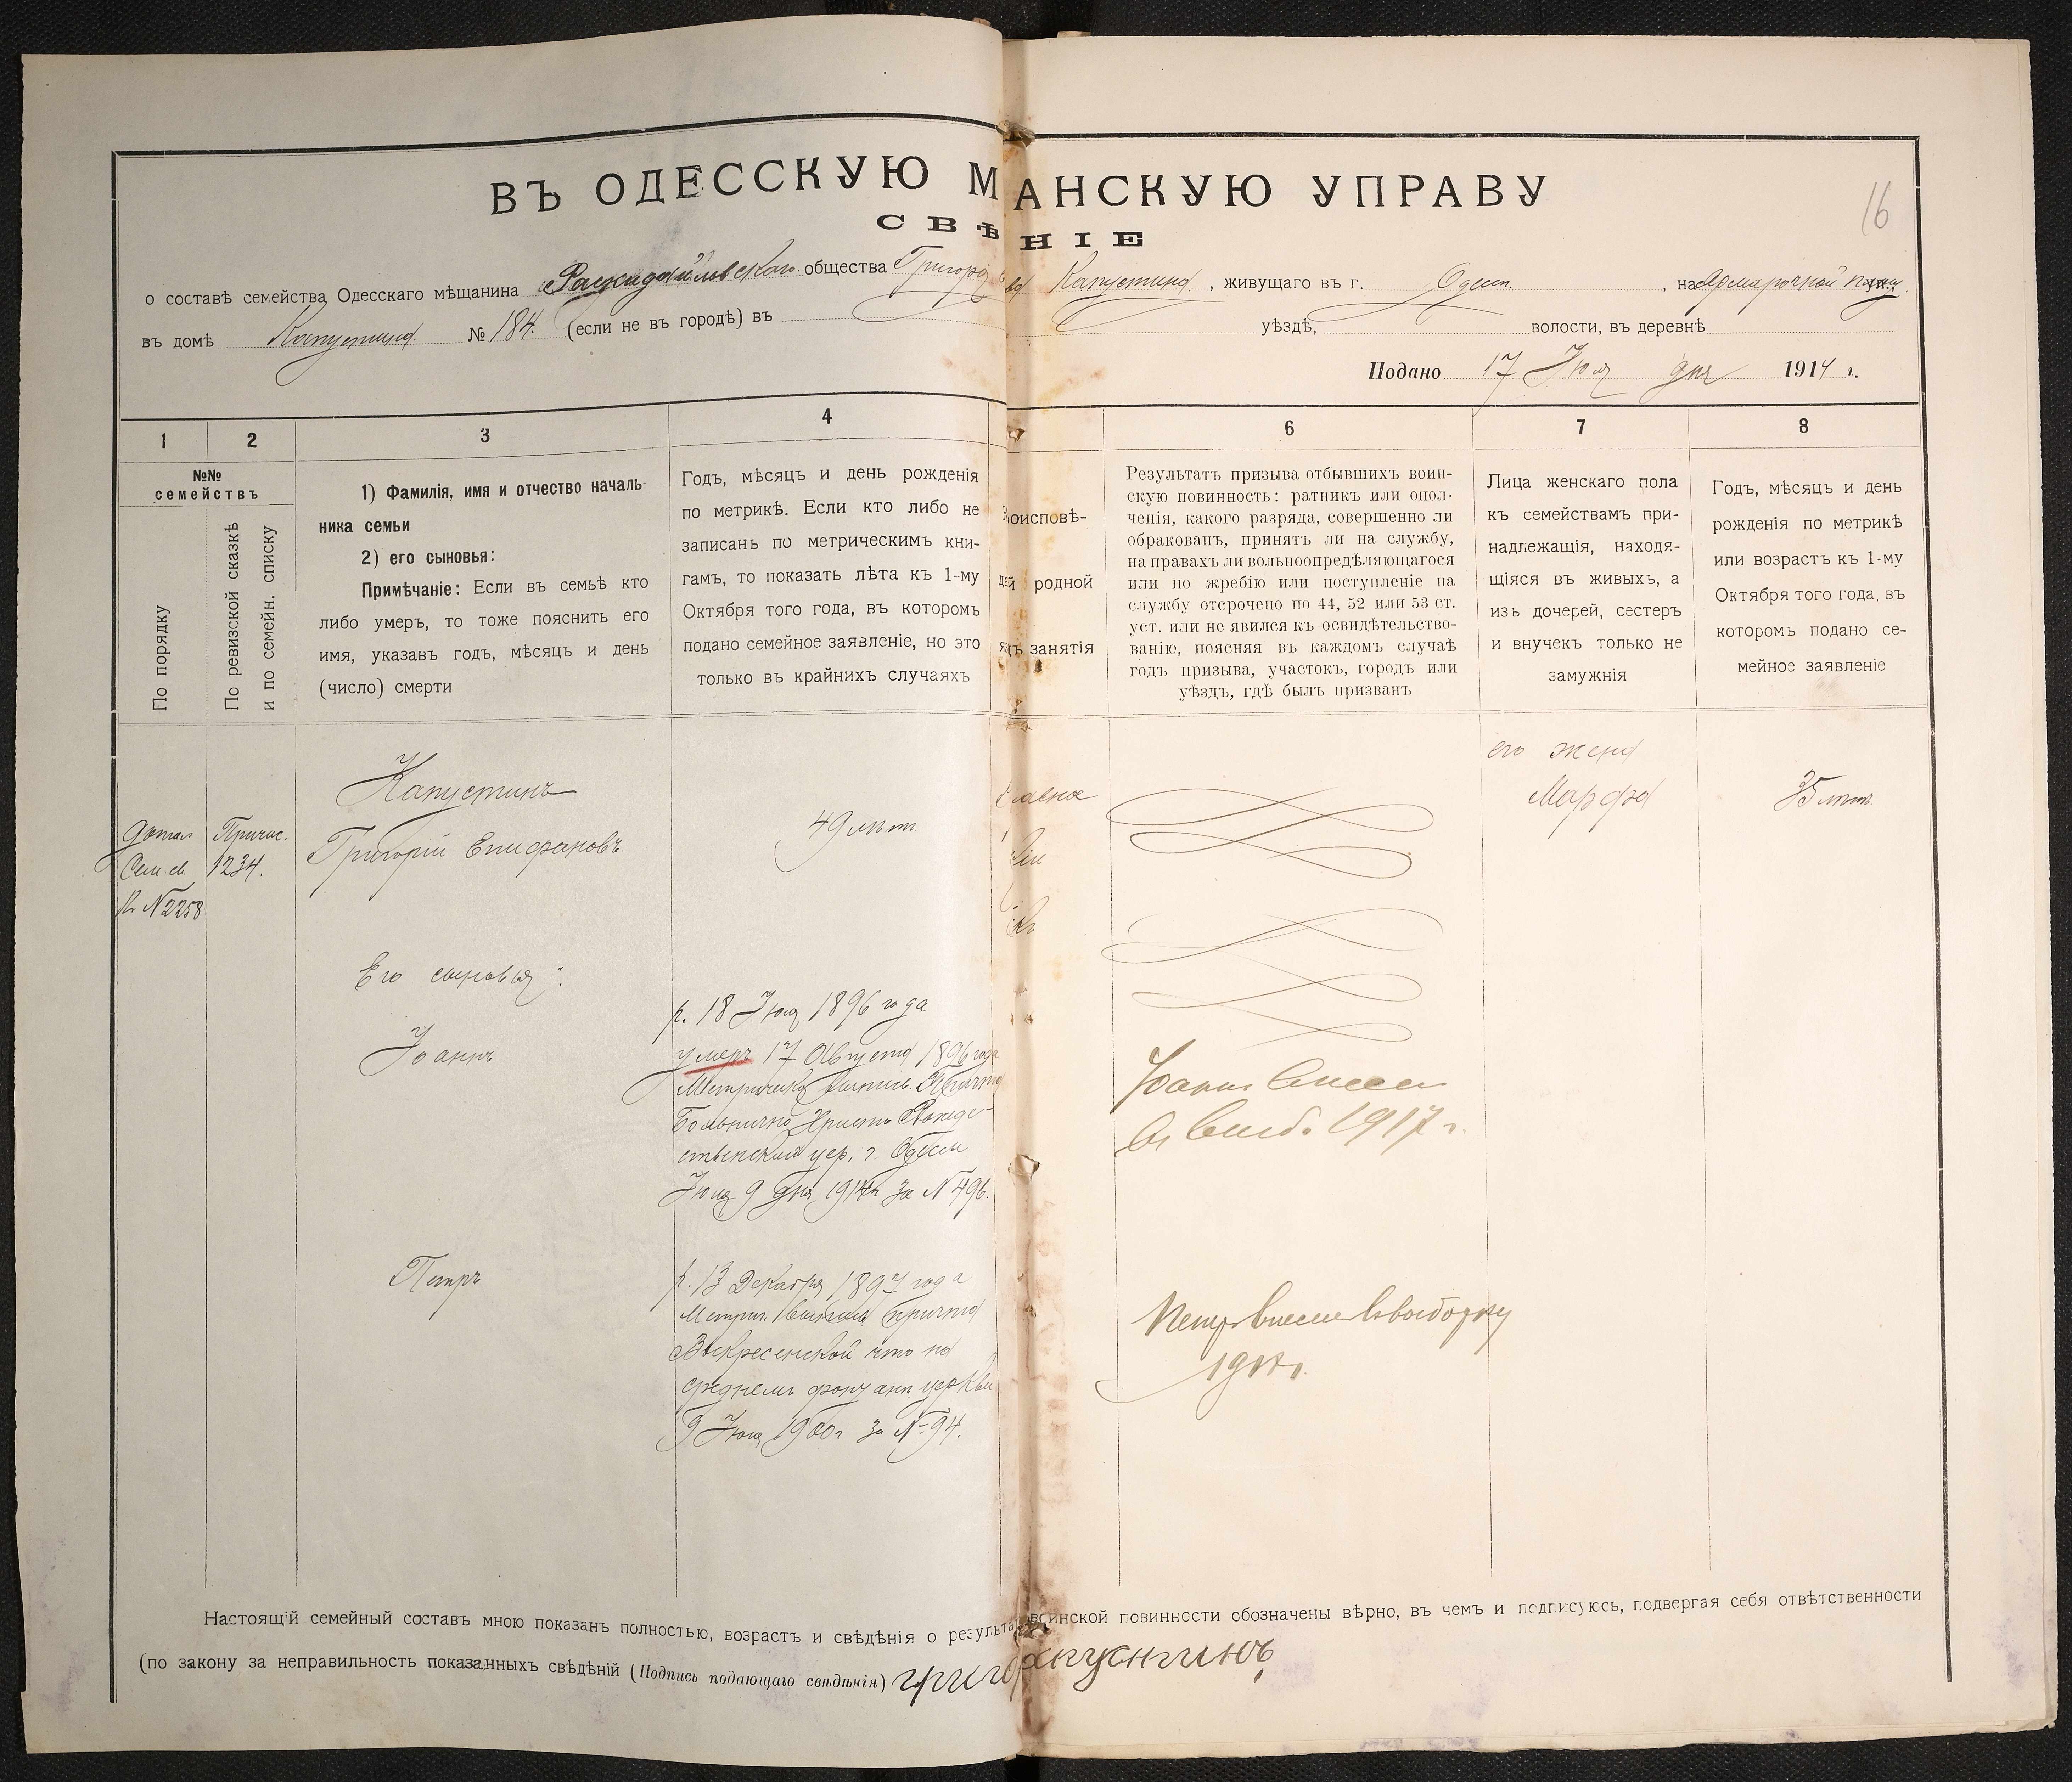 16
ВЪ ОДЕССКУЮ М АНСКУЮ УПРАВУ
СВѢ НІЕ
о составѣ семейства Одесскаго мѣщанина Раскидайловскаго общества Григорія Капустина, живущаго въ г. Одесс. на Ярмарочной ул.,
въ домѣ Капустина № 184. (если не въ городѣ) въ уѣздѣ, волости, въ деревнѣ
Подано 17 Юля дня 1914 г.
1 2 3 4 6 7 8
№№
семействъ
По порядку
По ревизской сказкѣ
и по семейн. списку
1) Фамилія, имя и отчество началь-
ника семьи
2) его сыновья:
Примѣчаніе: Если въ семьѣ кто
либо умеръ, то тоже пояснить его
имя, указавъ годъ, мѣсяцъ и день
(число) смерти
Годъ, мѣсяцъ и день рожденія
по метрикѣ. Если кто либо не
записанъ по метрическимъ кни-
гамъ, то показать лѣта къ 1-му
Октября того года, въ которомъ
подано семейное заявленіе, но это
только въ крайнихъ случаяхъ
оисповѣ-
родной
занятія
Результатъ призыва отбывшихъ воин-
скую повинность: ратникъ или опол-
ченія, какого разряда, совершенно ли
обракованъ, принятъ ли на службу,
на правахъ ли вольноопредѣляющагося
или по жребію или поступленіе на
службу отсрочено по 44, 52 или 53 ст.
уст. или не явился къ освидѣтельство-
ванію, поясняя въ каждомъ случаѣ
годъ призыва, участокъ, городъ или
уѣздъ, гдѣ былъ призванъ
Лица женскаго пола
къ семействамъ при-
надлежащія, находя-
щіяся въ живыхъ, а
изъ дочерей, сестеръ
и внучекъ только не
замужнія
Годъ, мѣсяцъ и день
рожденія по метрикѣ
или возрастъ къ 1-му
Октября того года, въ
которомъ подано се-
мейное заявленіе
Сем. св.
№ 2258
Причис.
1234.
Капустинъ
Григорій Епифановъ
49 лѣтъ
его жена
Марфа
35 лѣтъ
Его сыновья:
Іоаннъ
р. 18 Юля 1896 года
умеръ 17 Августа 1896 года
Христо Рождес-
твенской цер. г. Одессы
Юля 9 дня 1914 г. за № 496.
Іоаннъ
1917 г.
Петръ
р. 13 Декабря 1897 года
Метрич. выпись причта
Воскресенской что на
среднемъ фонтанѣ церкви
9 Юля 1900 г. за № 94.
Петръ внесенъ въ выборку
Настоящій семейный составъ мною показанъ полностью, возрастъ и свѣдѣнія о результа воинской повинности обозначены вѣрно, въ чемъ и подписуюсь, подвергая себя отвѣтственности
(по закону за неправильность показанныхъ свѣдѣній (Подпись подающаго свѣдѣнія) григор апустинъ